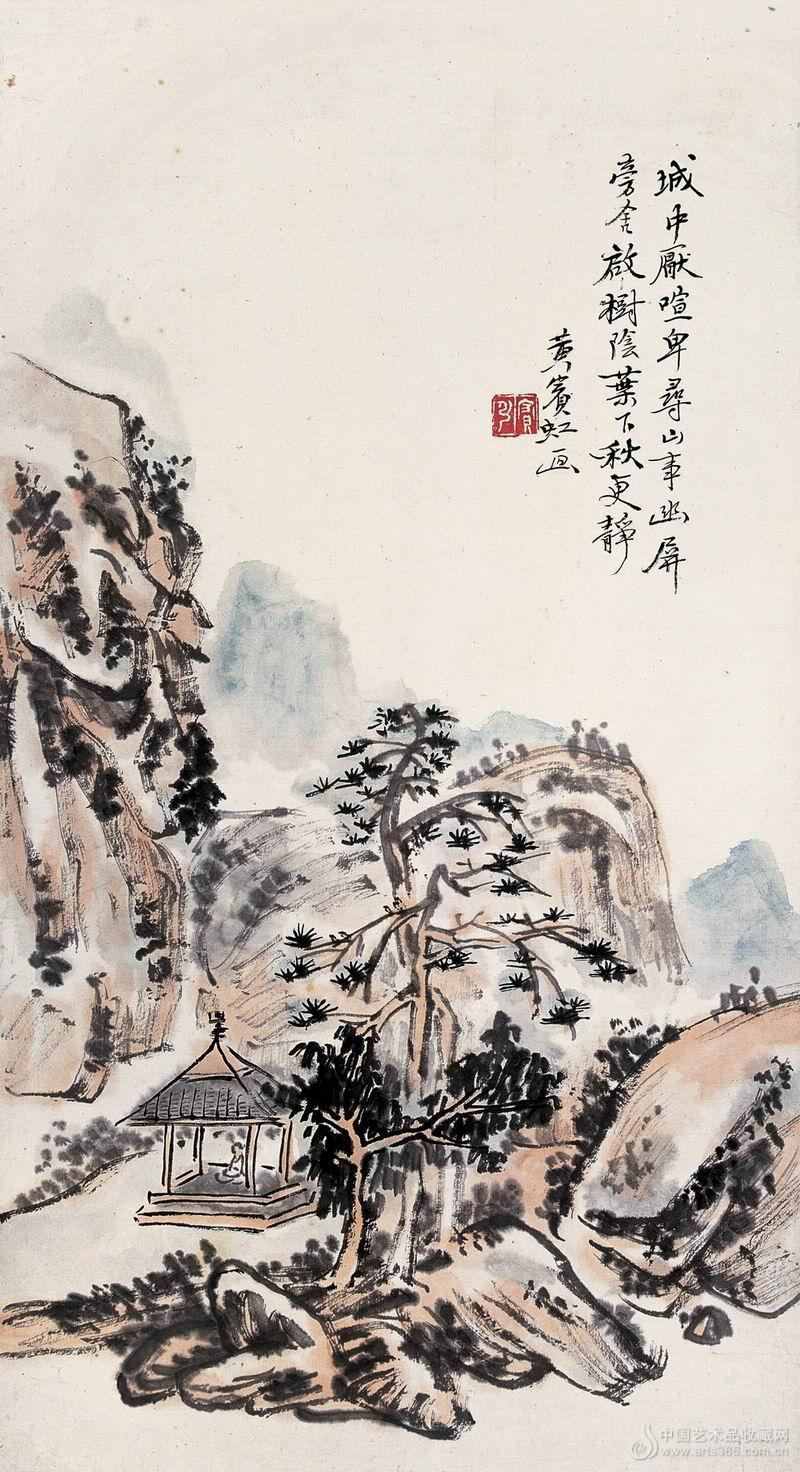 城中厭喧卑尋山事幽屏
旁舍啟樹陰葉下秋更靜
黃賓虹画
中国艺术品收藏网
www.arts365.com.cn